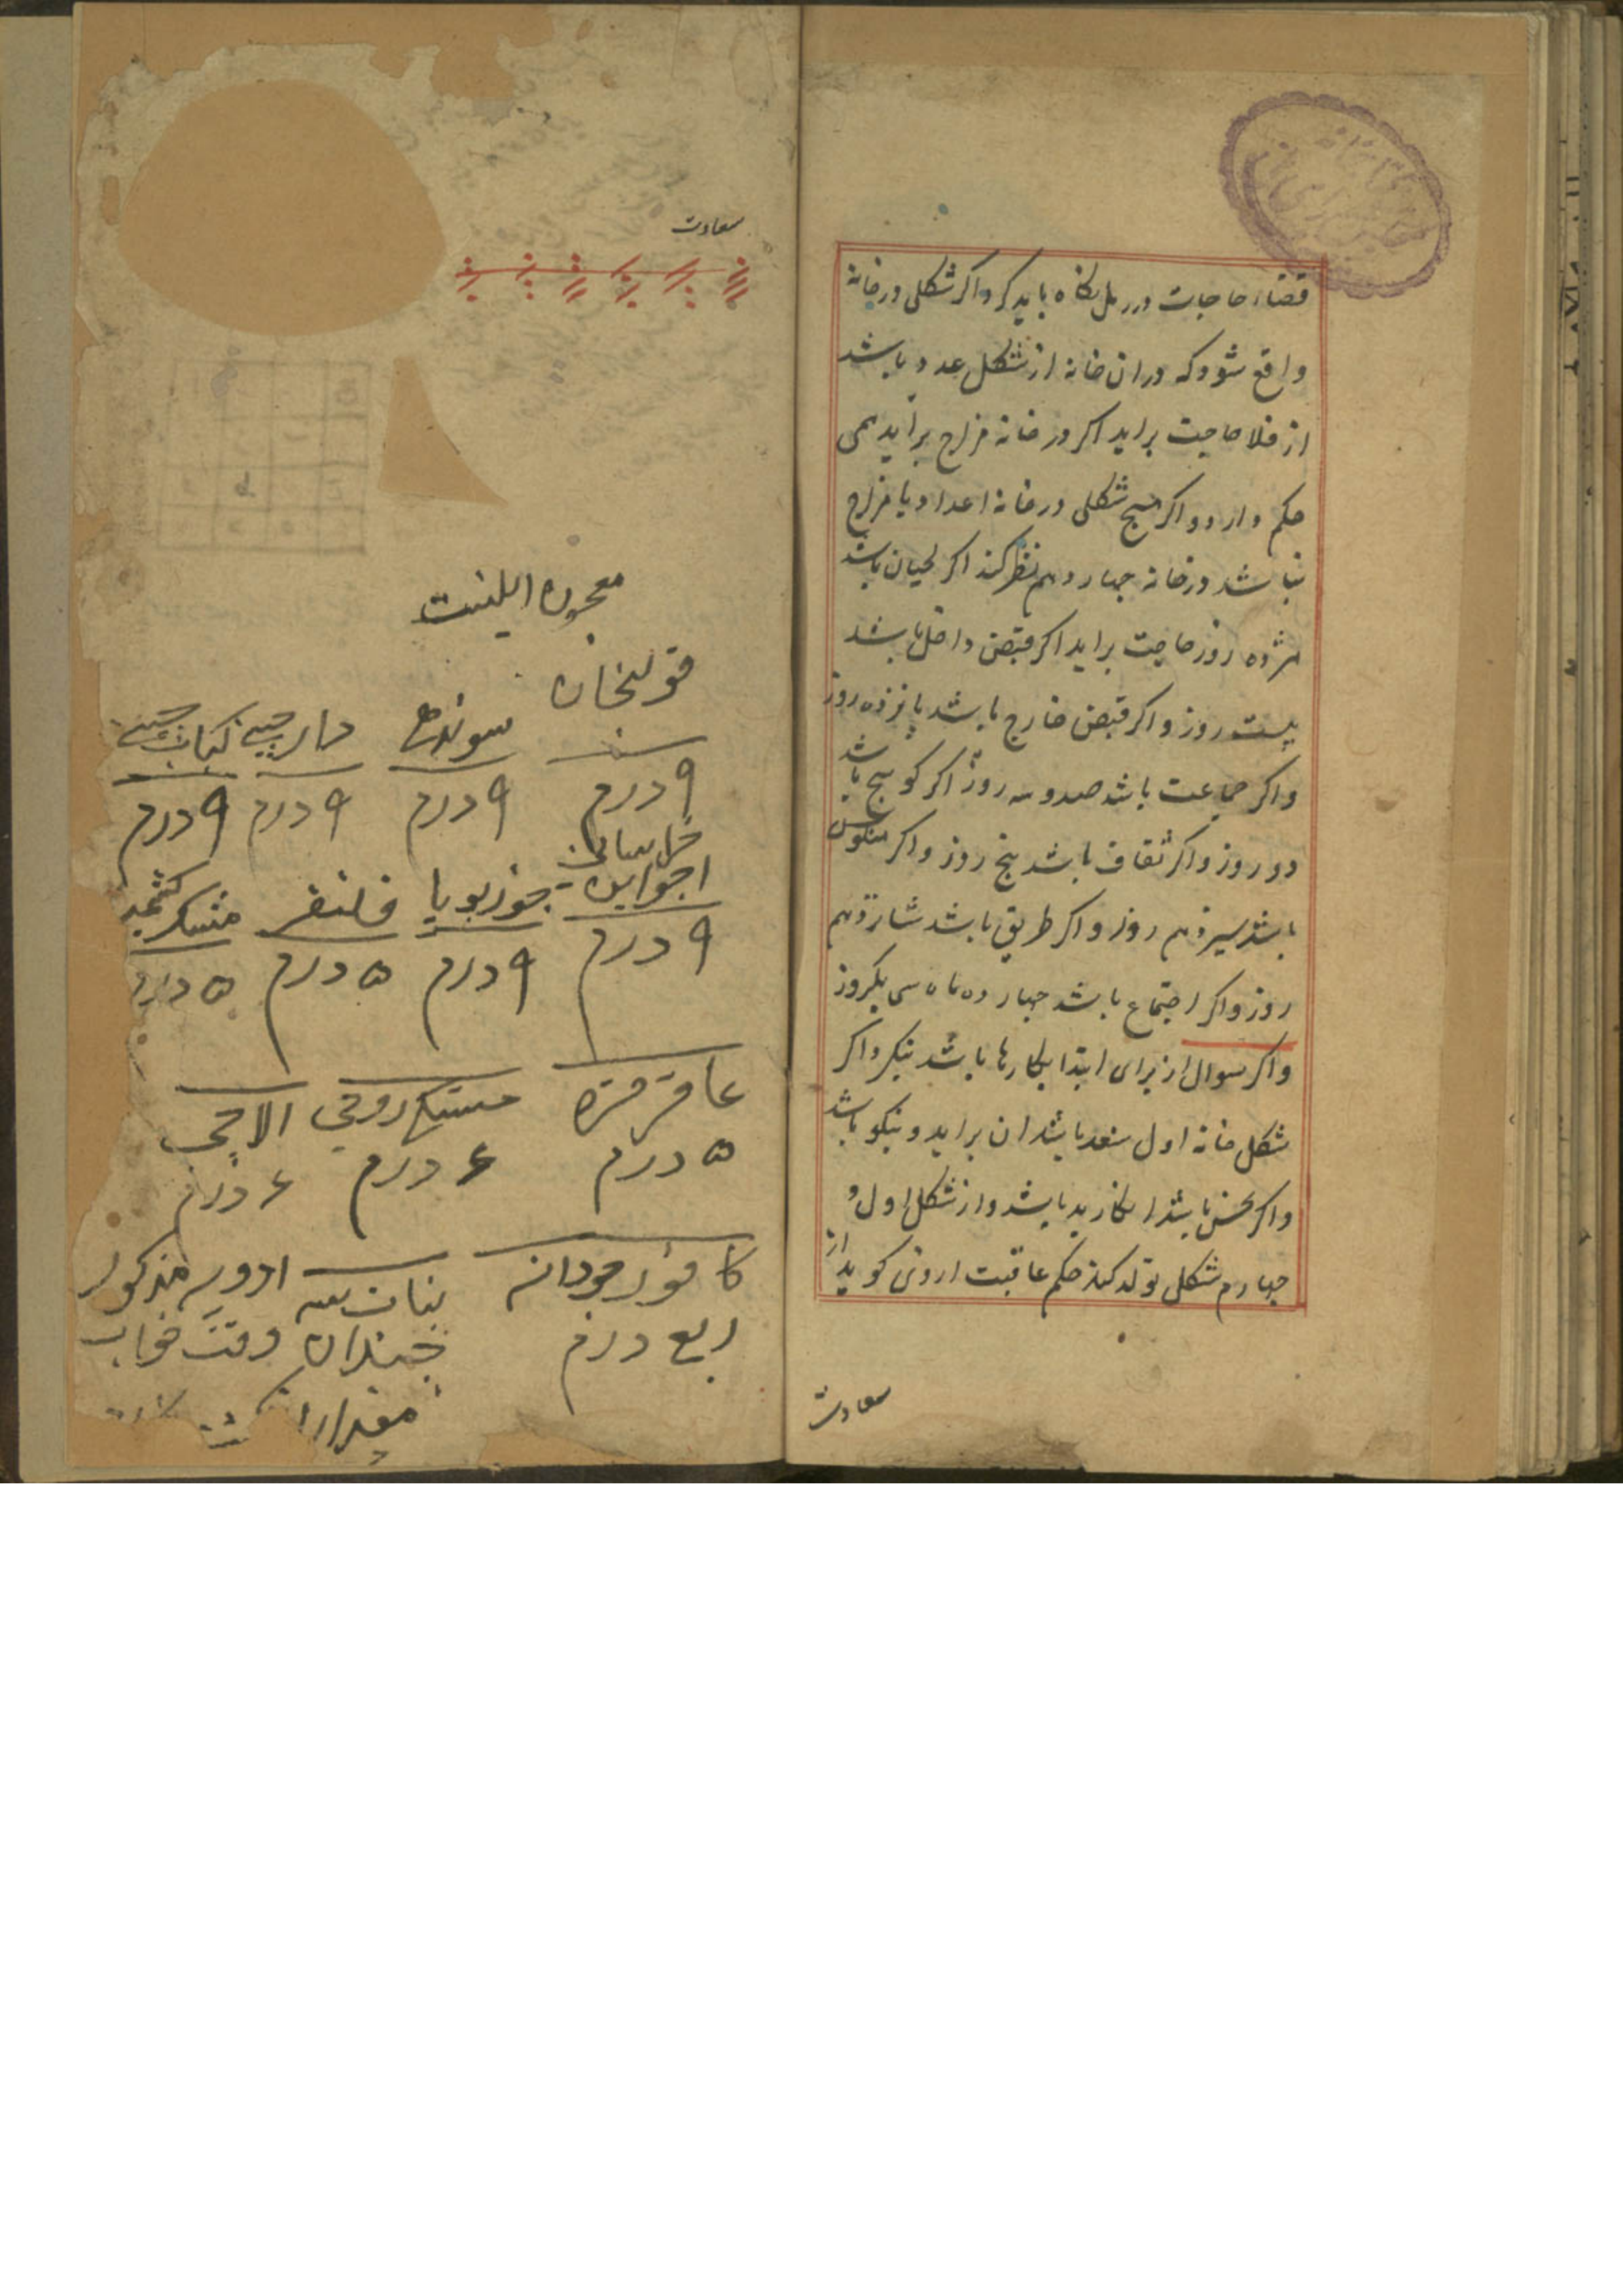 قضاء حاجات در رمل نکاه باید کرد اکر شکلی در خانه
واقع شود که در ان خانه از شکل عدد باشد
از فلا حاجت براید اکر در خانه مزاج براید همی
حکم دارد و اکر هیچ شکلی در خانه اعداد یا مزاج
نباشد در خانه چهاردهم نظر کند اکر لحیان باشد
هژده روز حاجت براید اکر قبض داخل باشد
بیست روز و اکر قبض خارج باشد پانزده روز
و اکر جماعت باشد صد و سه روز اکر کوسج باشد
دو روز و اکر ثقاف باشد پنج روز و اکر منکوس
باشد سیزدهم روز و اکر طریق باشد شانزدهم
روز و اکر اجتماع باشد چهارده ماه سی یکروز
و اکر سوال از برای ابتدا بکارها باشد بنکر و اکر
شکل خانه اول سعد باشد ان براید و نیکو باشد
و اکر نحس باشد ان کار بد باشد و از شکل اول و
چهارم شکلی تولد کند حکم عاقبت از وی کوید از
سعادت
سعادت
معجون اینست
قولنجان سونٹھ دارچینی کباب چینی
۹ درم ۹ درم ۹ درم ۹ درم
خراسانی
اجواین جوزبویا قلنفر مشک کشمیر
۹ درم ۹ درم ۵ درم ۵ درم
عاقرقره مستکی رومی الاچی
۵ درم ۶ درم ۶ درم
کافور جودانه نبات سه ادویه مذکور
ربع درم چندان وقت خواب
مقدار